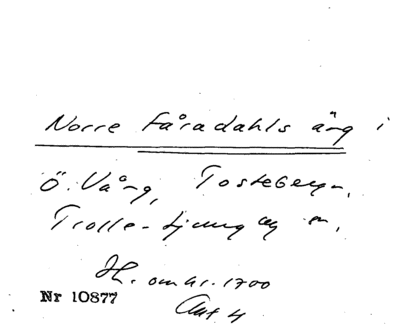 Norre Fåradahls äng i
Ö. Vång, Tosteberga,
Trolle-Ljungby sn.
Hl. omkr. 1700
Nr 10877
Akt 4